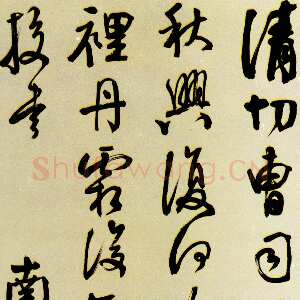 清切曹司
秋興復何
裡丹霜後
校書
南
Shufawang.CN